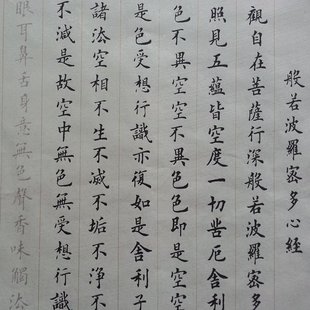 般若波羅密多心經
觀自在菩薩行深般若波羅密多
照見五蘊皆空度一切苦厄舍利
色不異空空不異色色即是空空
是色受想行識亦復如是舍利子
諸法空相不生不滅不垢不淨不
不減是故空中無色無受想行識
眼耳鼻舌身意無色聲香味觸法